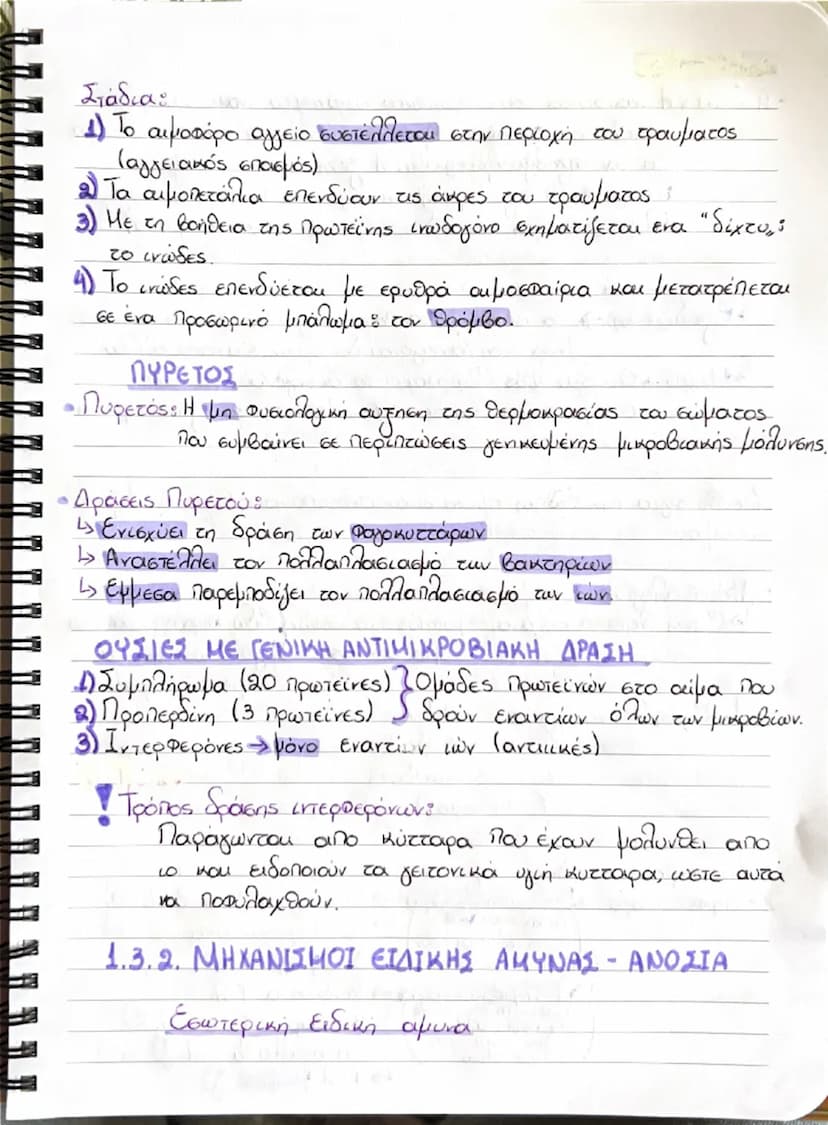 Στάδια:
1) Το αιμοφόρο αγγείο συστέλλεται στην περιοχή του τραύματος
(αγγειακός σπασμός)
2) Τα αιμοπετάλια επενδύουν τις άκρες του τραύματος
3) Με τη βοήθεια της πρωτεΐνης ινωδογόνο σχηματίζεται ένα "δίχτυ":
το ινώδες.
4) Το ινώδες επενδύεται με ερυθρά αιμοσφαίρια και μετατρέπεται
σε ένα προσωρινό μπάλωμα: τον θρόμβο.
ΠΥΡΕΤΟΣ
• Πυρετός: Η μη φυσιολογική αύξηση της θερμοκρασίας του σώματος
που συμβαίνει σε περιπτώσεις γενικευμένης μικροβιακής μόλυνσης.
• Δράσεις Πυρετού:
↳ Ενισχύει τη δράση των φαγοκυττάρων
↳ Αναστέλλει τον πολλαπλασιασμό των βακτηρίων
↳ Έμμεσα παρεμποδίζει τον πολλαπλασιασμό των ιών
ΟΥΣΙΕΣ ΜΕ ΓΕΝΙΚΗ ΑΝΤΙΜΙΚΡΟΒΙΑΚΗ ΔΡΑΣΗ
1) Συμπλήρωμα (20 πρωτεΐνες) } Ομάδες πρωτεϊνών στο αίμα που
2) Προπερδίνη (3 πρωτεΐνες) } δρουν εναντίων όλων των μικροβίων.
3) Ιντερφερόνες → μόνο εναντίων ιών (αντιικές)
! Τρόπος δράσης ιντερφερόνων:
Παράγωνται απο κύτταρα που έχουν μολυνθεί απο
ιο και ειδοποιούν τα γειτονικά υγιή κυτταρα, ώστε αυτά
να ποφυλαχθούν.
1.3.2. ΜΗΧΑΝΙΣΜΟΙ ΕΙΔΙΚΗΣ ΑΜΥΝΑΣ - ΑΝΟΣΙΑ
Εσωτερική ειδική αμυνα